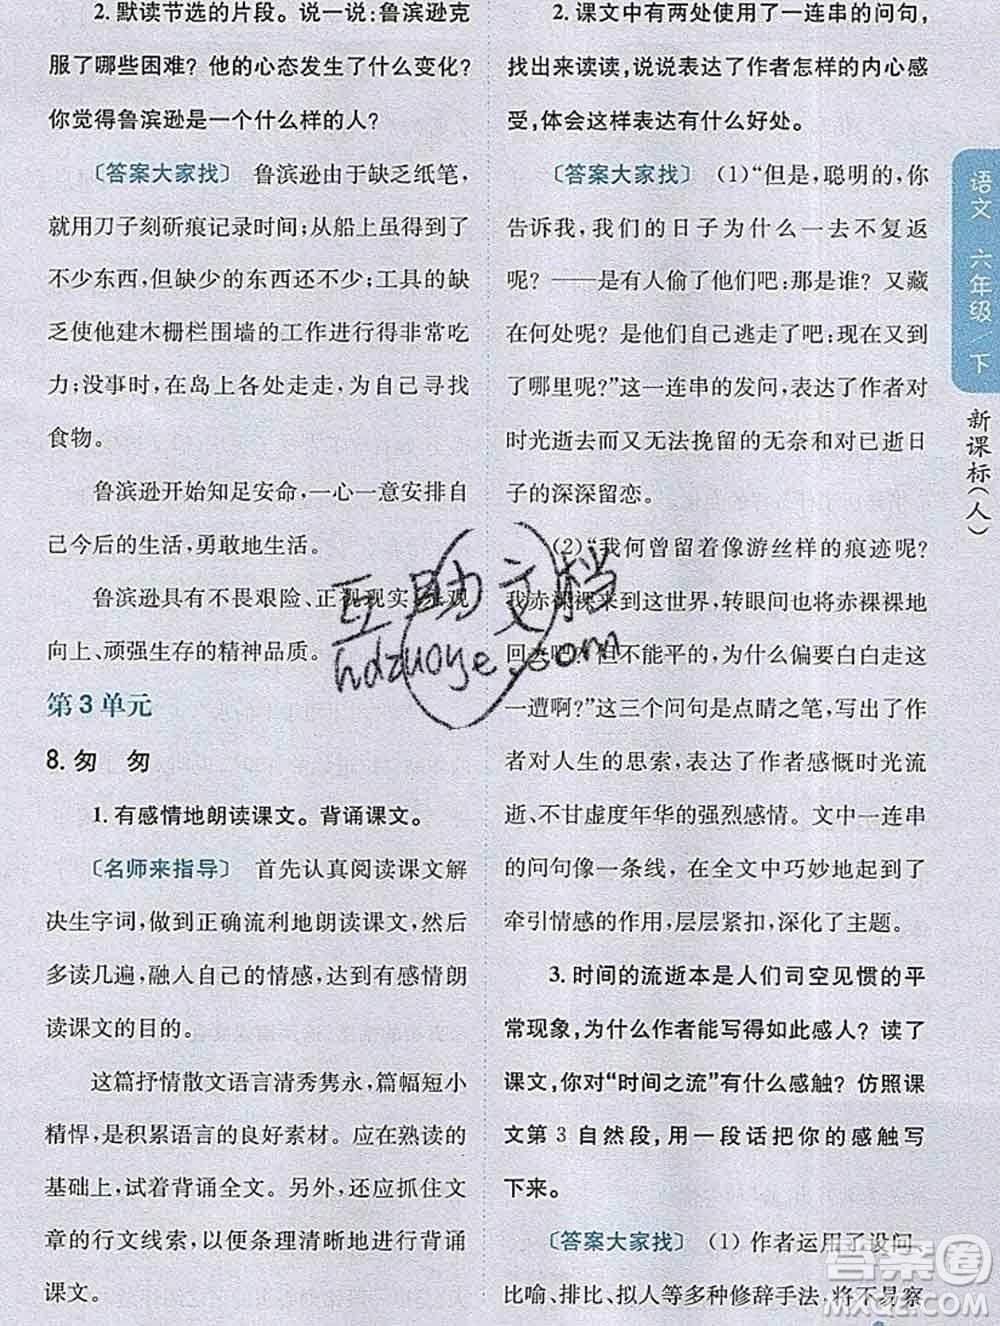 2. 默读节选的片段。说一说:鲁滨逊克
服了哪些困难？他的心态发生了什么变化？
你觉得鲁滨逊是一个什么样的人？
〔答案大家找〕 鲁滨逊由于缺乏纸笔,
就用刀子刻斫痕记录时间;从船上虽得到了
不少东西,但缺少的东西还不少;工具的缺
乏使他建木栅栏围墙的工作进行得非常吃
力;没事时,在岛上各处走走,为自己寻找
食物。
鲁滨逊开始知足安命,一心一意安排自
己今后的生活,勇敢地生活。
鲁滨逊具有不畏艰险、正视现实、乐观
向上、顽强生存的精神品质。
第3单元
8. 匆 匆
1. 有感情地朗读课文。背诵课文。
〔名师来指导〕 首先认真阅读课文解
决生字词,做到正确流利地朗读课文,然后
多读几遍,融入自己的情感,达到有感情朗
读课文的目的。
这篇抒情散文语言清秀隽永,篇幅短小
精悍,是积累语言的良好素材。应在熟读的
基础上,试着背诵全文。另外,还应抓住文
章的行文线索,以便条理清晰地进行背诵
课文。
2. 课文中有两处使用了一连串的问句,
找出来读读,说说表达了作者怎样的内心感
受,体会这样表达有什么好处。
〔答案大家找〕 (1)“但是,聪明的,你
告诉我,我们的日子为什么一去不复返
呢？——是有人偷了他们吧:那是谁？又藏
在何处呢？是他们自己逃走了吧:现在又到
了哪里呢？”这一连串的发问,表达了作者对
时光逝去而又无法挽留的无奈和对已逝日
子的深深留恋。
(2)“我何曾留着像游丝样的痕迹呢？
我赤裸裸来到这世界,转眼间也将赤裸裸地
回去吧？但不能平的,为什么偏要白白走这
一遭啊？”这三个问句是点睛之笔,写出了作
者对人生的思索,表达了作者感慨时光流
逝、不甘虚度年华的强烈感情。文中一连串
的问句像一条线,在全文中巧妙地起到了
牵引情感的作用,层层紧扣,深化了主题。
3. 时间的流逝本是人们司空见惯的平
常现象,为什么作者能写得如此感人？读了
课文,你对“时间之流”有什么感触？仿照课
文第 3 自然段,用一段话把你的感触写
下来。
〔答案大家找〕 (1)作者运用了设问、
比喻、排比、拟人等多种修辞手法,将不易察
语文 六年级/下
新课标(人)
互助文档
hdzuoye.com
答案圈